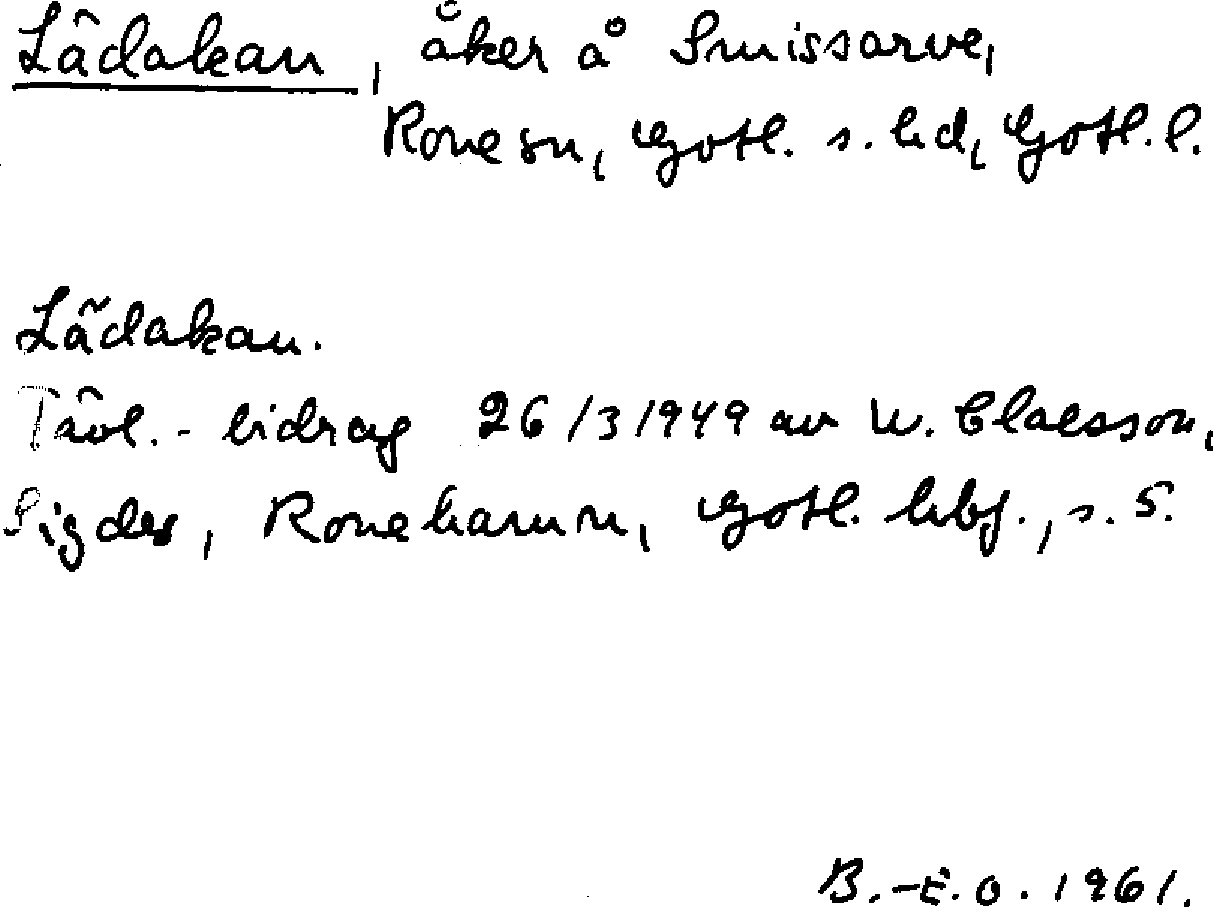 Lãdakan, åker å Smissarve,
Rone sn, Gotl. s. hd, Gotl. l.
Lãdakan.
Tävl.-bidrag 26/3 1949 av W. Claesson,
Sigdes, Ronehamn, Gotl. hbf., s. 5.
B.-E. O. 1961.